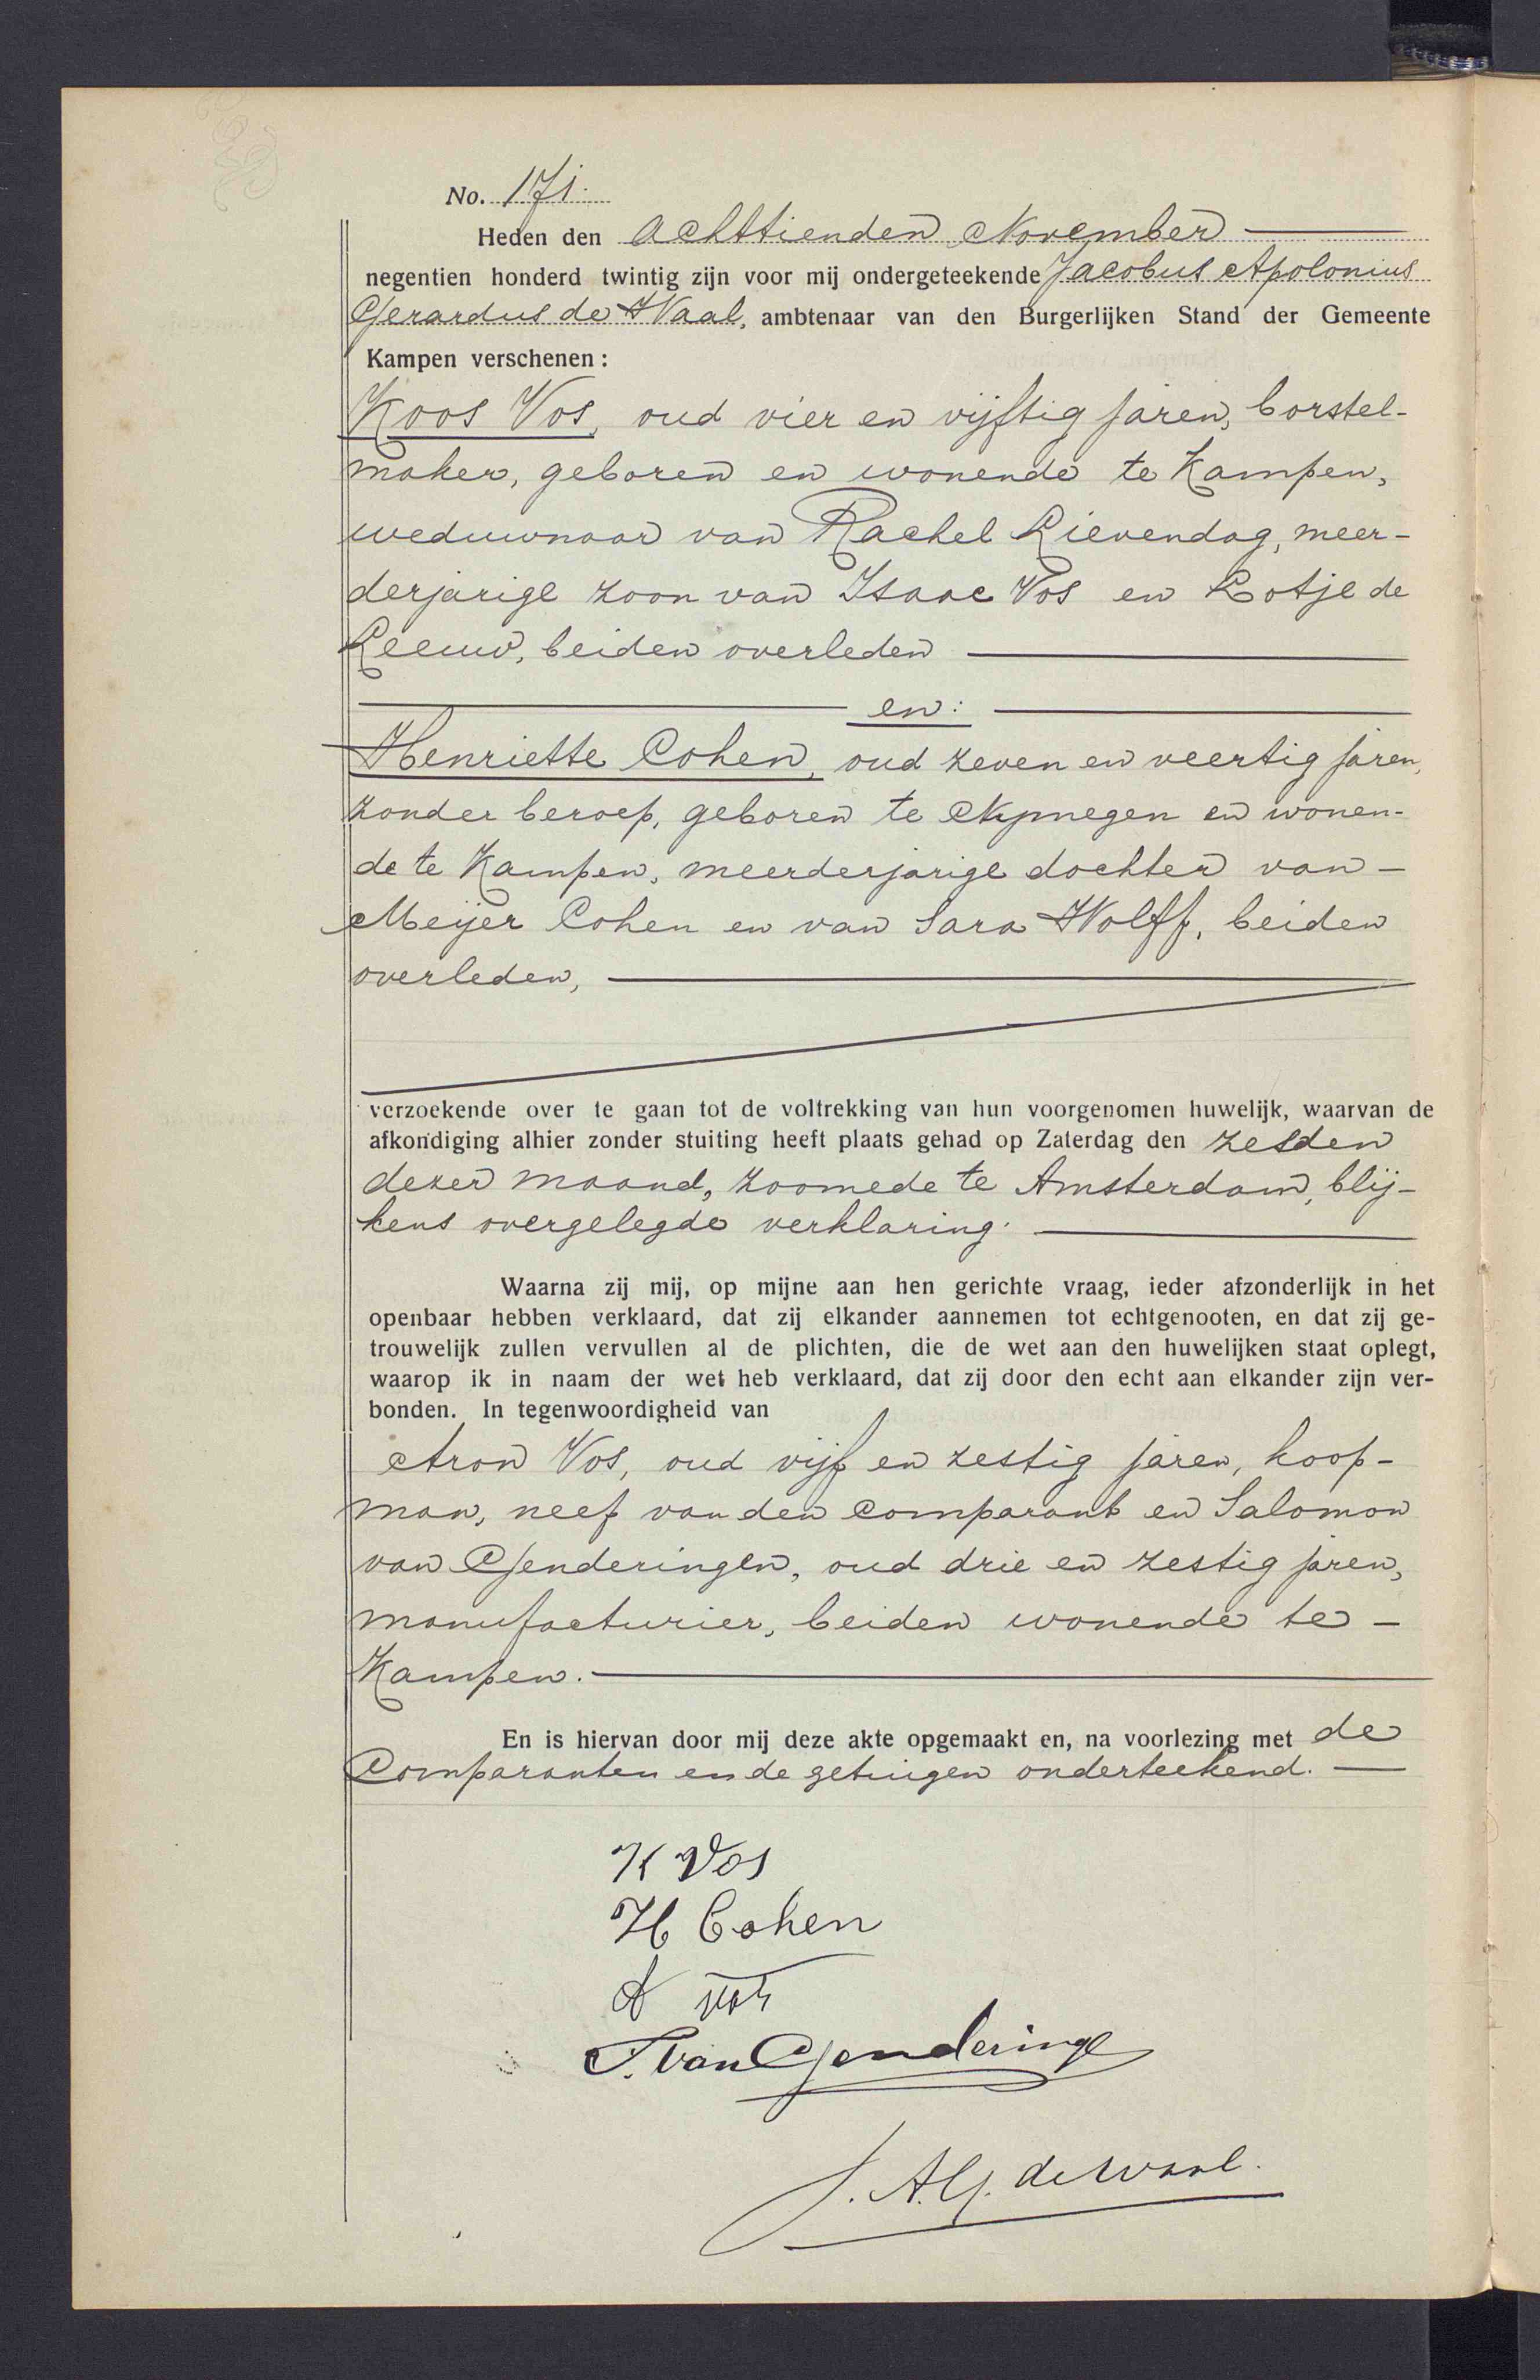 No. 171.
Heden den achttienden November
negentien honderd twintig zijn voor mij ondergeteekende Jacobus Apolonius
Gerardus de Waal, ambtenaar van den Burgerlijken Stand der Gemeente
Kampen verschenen:
Koos Vos, oud vier en vijftig jaren, borstel-
maker, geboren en wonende te Kampen,
weduwnaar van Rachel Lievendag, meer-
derjarige zoon van Isaac Vos en Lotje de
Leeuw, beiden overleden
en:
Henriette Cohen, oud zeven en veertig jaren,
zonder beroep, geboren te Nijmegen en wonen-
de te Kampen, meerderjarige dochter van -
Meijer Cohen en van Sara Wolff, beiden
overleden,
verzoekende over te gaan tot de voltrekking van hun voorgenomen huwelijk, waarvan de
afkondiging alhier zonder stuiting heeft plaats gehad op Zaterdag den zesden
dezer maand, zoomede te Amsterdam, blij-
kens overgelegde verklaring.
Waarna zij mij, op mijne aan hen gerichte vraag, ieder afzonderlijk in het
openbaar hebben verklaard, dat zij elkander aannemen tot echtgenooten, en dat zij ge-
trouwelijk zullen vervullen al de plichten, die de wet aan den huwelijken staat oplegt,
waarop ik in naam der wet heb verklaard, dat zij door den echt aan elkander zijn ver-
bonden. In tegenwoordigheid van
Aron Vos, oud vijf en zestig jaren, koop-
man, neef van den comparant en Salomon
van Genderingen, oud drie en zestig jaren,
manufacturier, beiden wonende te -
Kampen.
En is hiervan door mij deze akte opgemaakt en, na voorlezing met de
Comparanten en de getuigen onderteekend.
K Vos
H Cohen
A Vos
S. van Genderinge
J. A. G. de Waal.